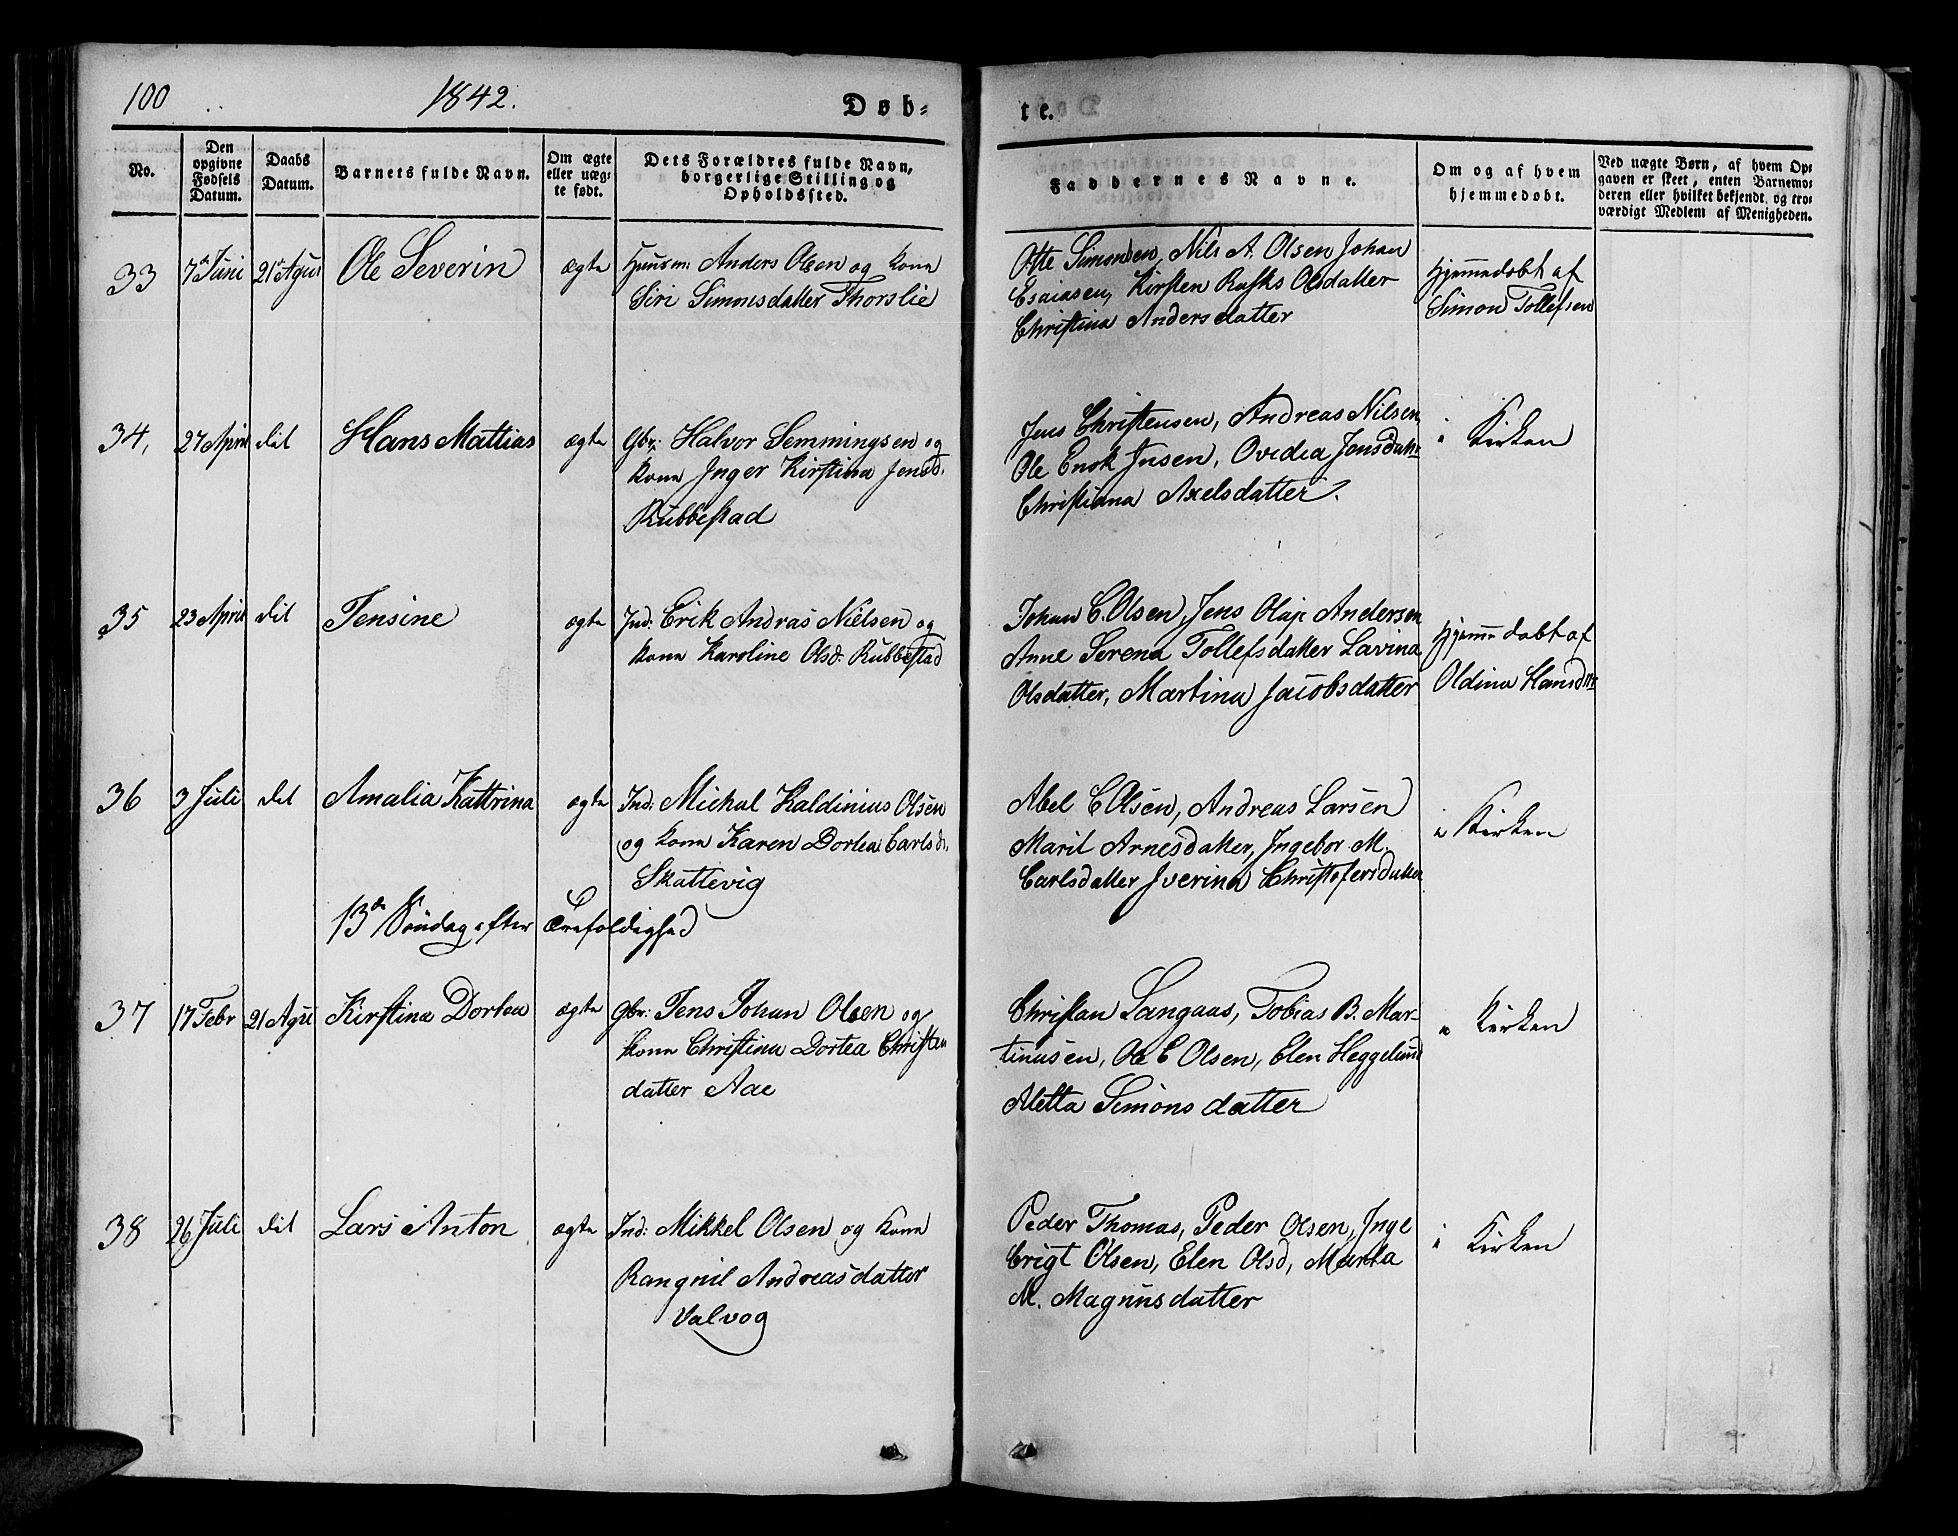 100 1842. Døb=
te.
No.
Den opgivne Fødsels Datum.
Daabs Datum.
Barnets fulde Navn.
Om ægte eller uæg= te født.
Dets Forældres fulde Navn, borgerlige Stilling og Opholdssted.
Faddernes Navne.
Om og af hvem hjemmedøbt.
Ved uægte Børn, af hvem Op= gaven er skeet, enten Barnemo= deren eller hvilket bekjendt og tro= værdigt Medlem af Menigheden.
33 7de Juni 21de Agus Ole Severin ægte Huusm: Anders Olsen og Kone
Siri Simonsdatter Thorslie
Otte Simonsen, Nils A. Olsen Johan
Esaiasen, Kirsten Rasks Olsdatter
Christina Andersdatter
Hjemmedøbt af
Simon Tollefsen
34, 27 April dit Hans Mattias ægte Gbr: Halvor Semmingsen og
Kone Inger Kirstina Jensd.
Rubbestad
Jens Christensen, Andreas Nilsen,
Ole Enok Jnsen, Ovidia Jensdattr
Christiana Axelsdatter.
i Kirken
35 23 April dit Jensine ægte Ind: Erik Andras Nielsen og
Kone Karoline Olsd: Rubbestad
Johan C. Olsen, Jens Olaji Andersen
Anne Serena Tollefsdatter Lavina
Olsdatter, Martina Jacobsdatter
Hjemmedøbt af
Oldina Hansdttr
36 3 Juli dit Amalia Kattrina ægte Ind: Michal Kaldinius Olsen
og Kone Karen Dortea Carlsd.
Skattevig
Abel C Olsen, Andreas Larsen
Marit Arnesdatter, Ingebor M.
Carlsdatter Iverina Christofersdatter
i Kirken
13de Søndag efter Trefoldighed
37 17 Febr 21 Agu Kirstina Dortea ægte Gbr: Jens Johan Olsen og
Kone Christina Dortea Christen
datter Aae
Christian Langaas, Tobias B. Mar-
tinusen, Ole E Olsen, Elen Heggelund
Aletta Simonsdatter
i Kirken
38 26 Juli dit Lars Anton ægte Ind: Mikkel Olsen og Kone
Rangnil Andreasdatter
Valvog
Peder Thomas, Peder Olsen, Inge
brigt Olsen, Elen Olsd, Marta
M. Magnusdatter
i Kirken